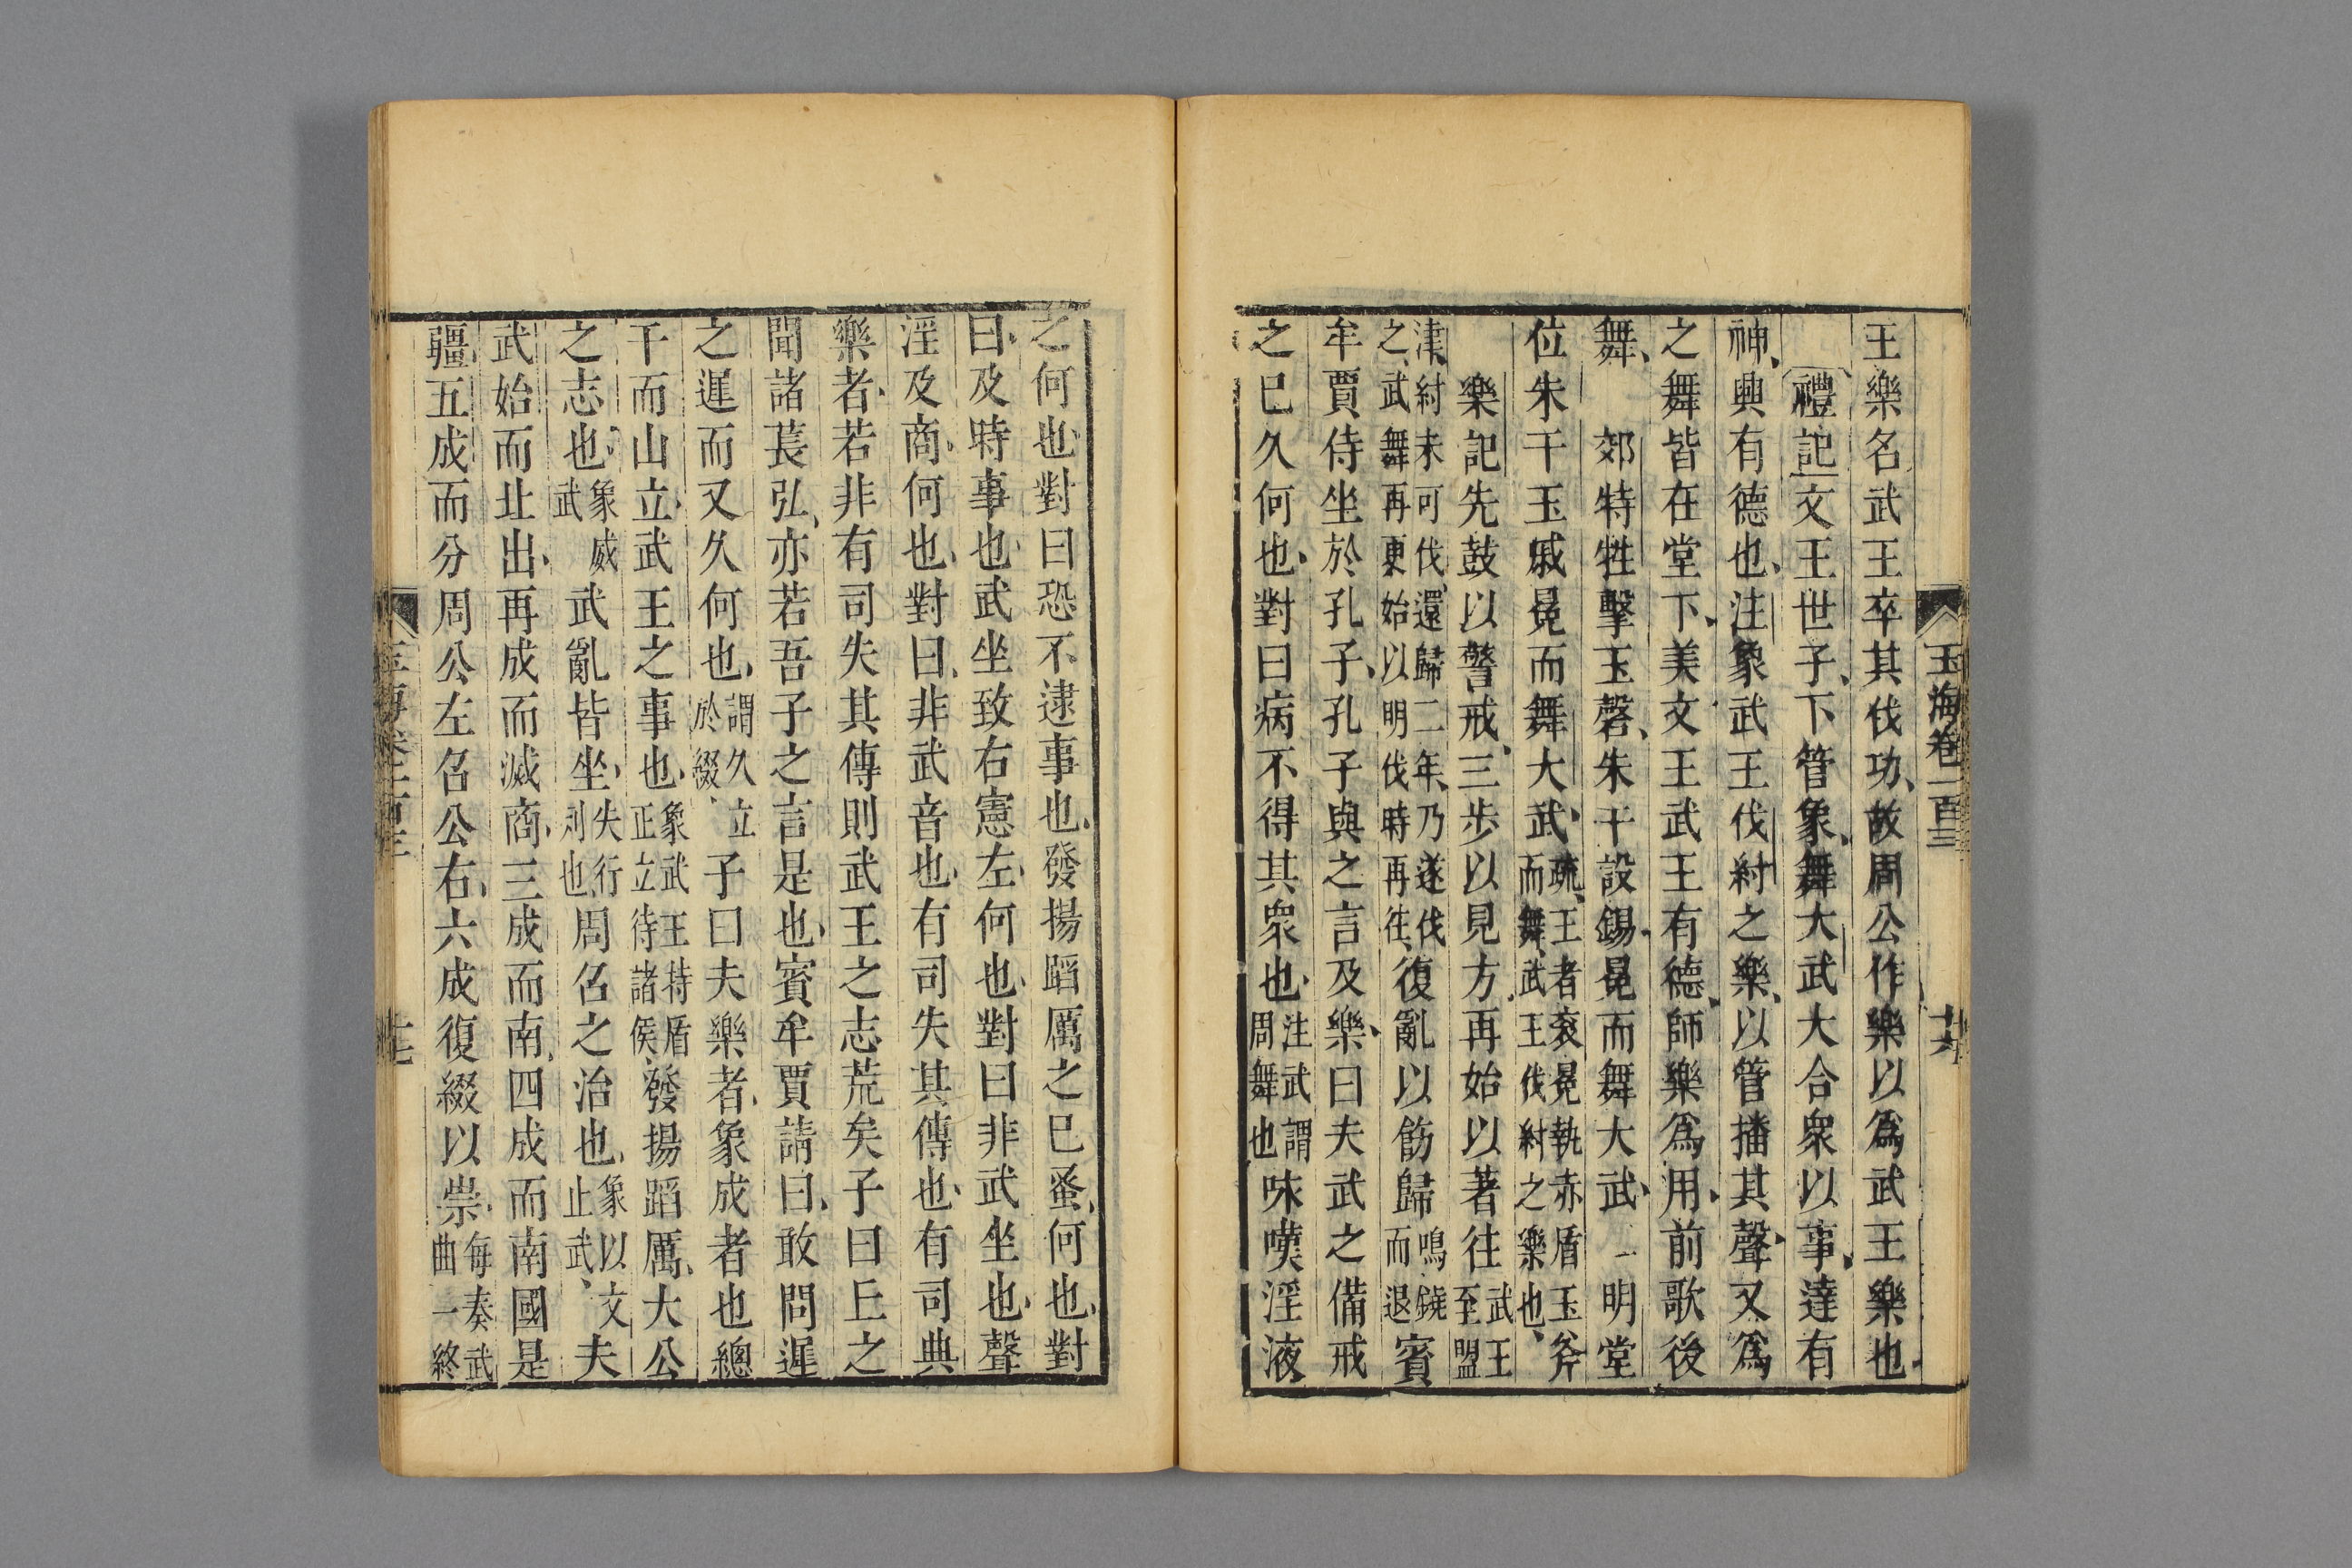 玉海卷一百三 十六
王樂名武王卒其伐功故周公作樂以爲武王樂也
禮記文王世子下管象舞大武大合衆以事達有
神興有德也注象武王伐紂之樂以管播其聲又爲
之舞皆在堂下美文王武王有德師樂爲用前歌後
舞 郊特牲擊玉磬朱干設錫冕而舞大武 明堂
位朱干玉戚冕而舞大武疏王者衮冕執赤盾玉斧而舞武王伐紂之樂也
樂記先鼓以警戒三步以見方再始以著往武王至盟
津紂未可伐還歸二年乃遂伐之武舞再更始以明伐時再往復亂以飭歸鳴鐃而退賓
牟賈侍坐於孔子孔子與之言及樂曰夫武之備戒
之已久何也對曰病不得其衆也注武謂周舞也咏嘆淫液
之何也對曰恐不逮事也發揚蹈厲之已蚤何也對
曰及時事也武坐致右憲左何也對曰非武坐也聲
淫及商何也對曰非武音也有司失其傳也有司典
樂者若非有司失其傳則武王之志荒矣子曰丘之
聞諸萇弘亦若吾子之言是也賓牟賈請曰敢問遲
之遲而又久何也謂久立於綴子曰夫樂者象成者也總
干而山立武王之事也象武王持盾正立待諸侯發揚蹈厲大公
之志也象威武武亂皆坐失行列也周召之治也象以文止武夫
武始而北出再成而滅商三成而南四成而南國是
疆五成而分周公左召公右六成復綴以崇每奏武曲一終